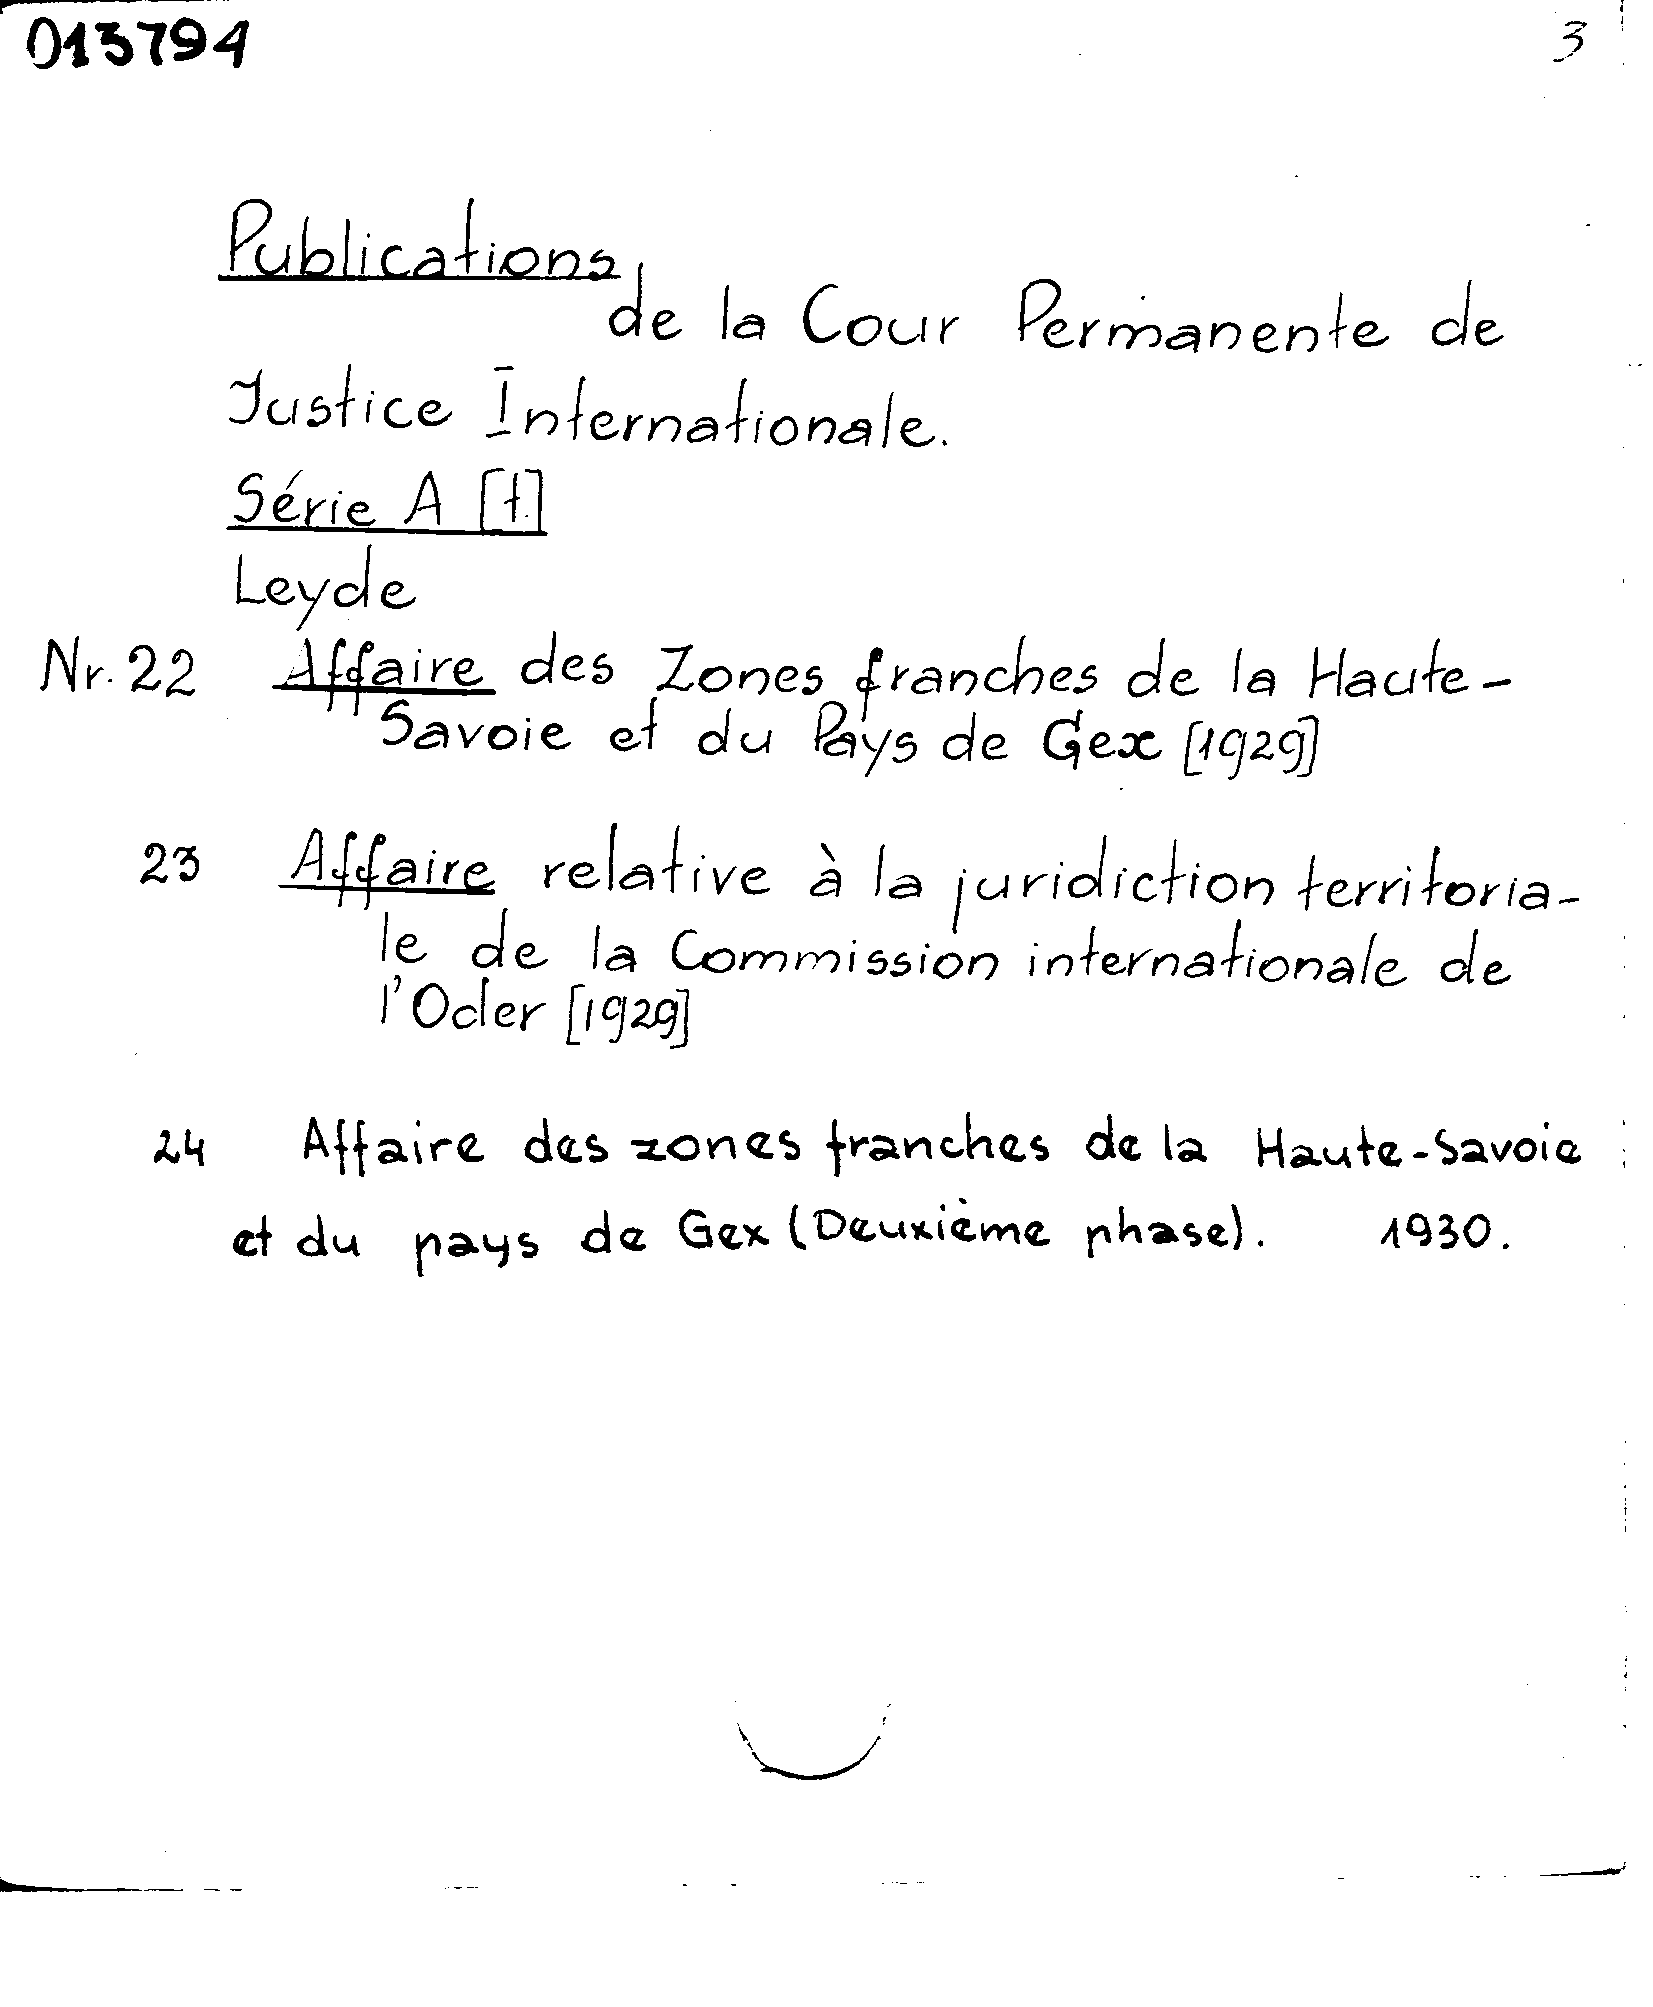 013794
3
Publications
de la Cour Permanente de
Justice Internationale.
Série A [1]
Leyde
Nr. 22 Affaire des Zones franches de la Haute-
Savoie et du Pays de Gex [1929]
23 Affaire relative à la juridiction territoria-
le de la Commission internationale de
l'Oder [1929]
24 Affaire des zones franches de la Haute-Savoie
et du pays de Gex (Deuxième phase). 1930.